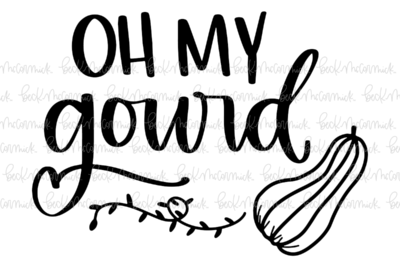 OH MY
gourd